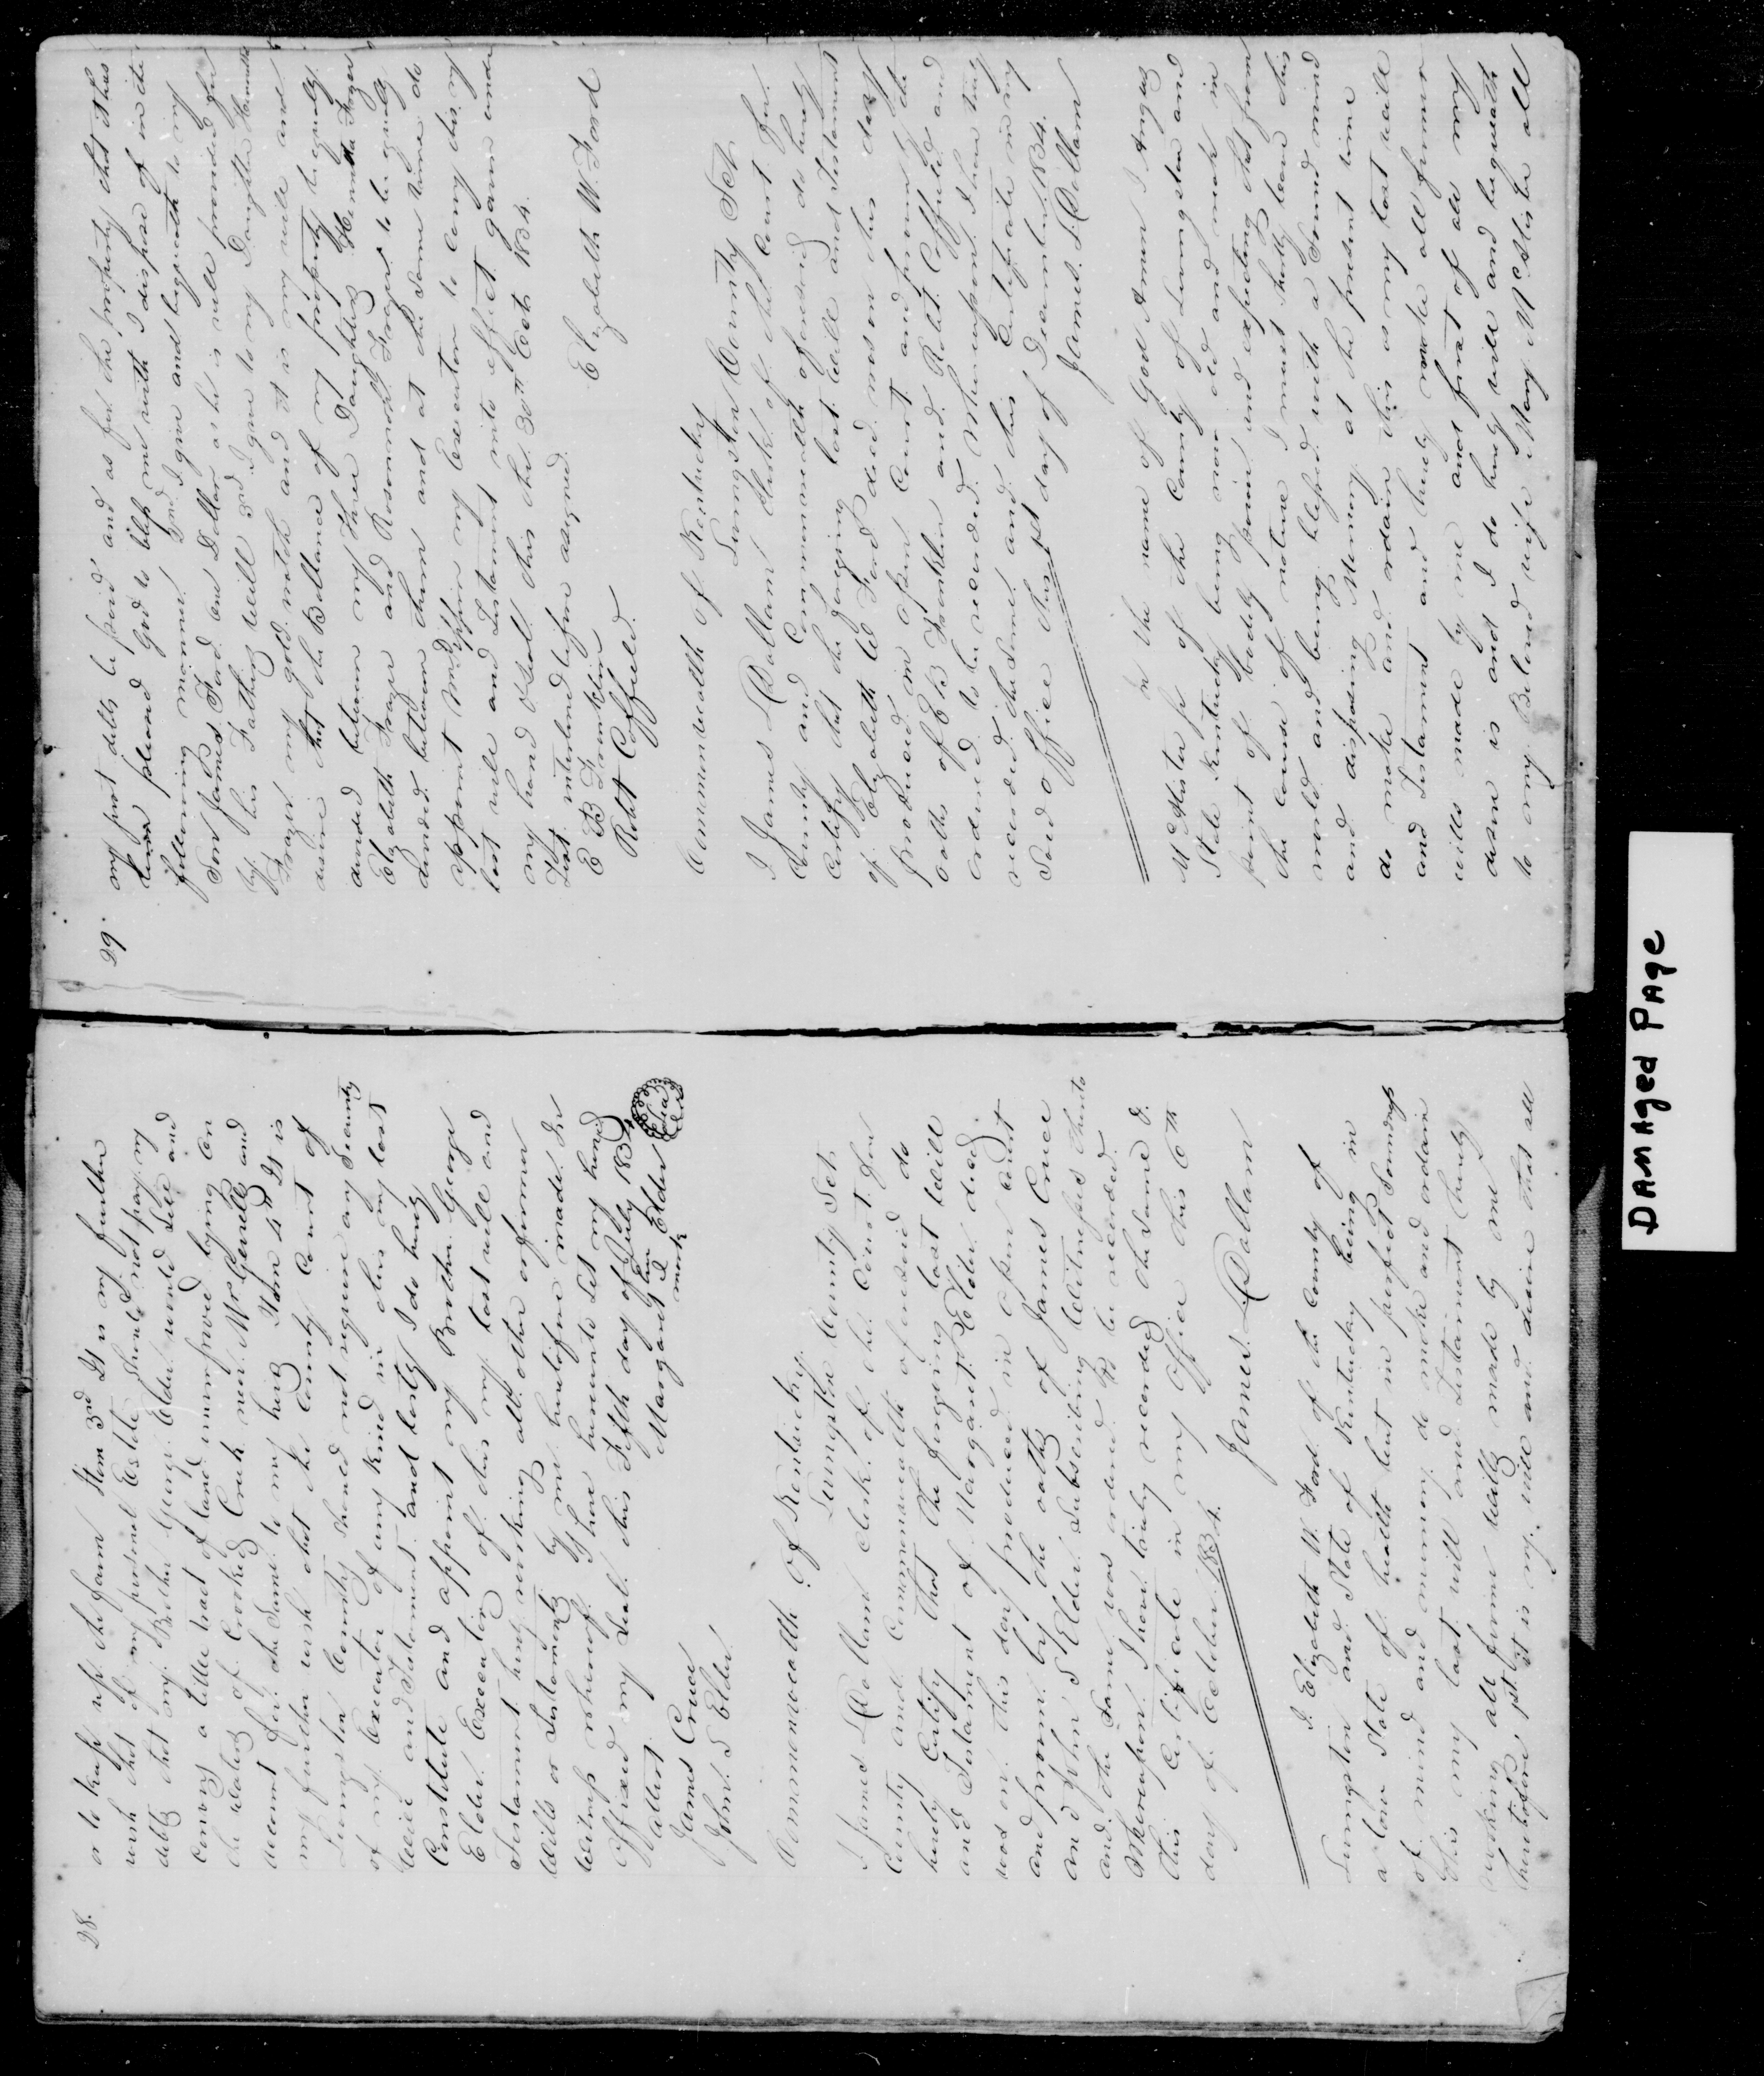 28.
or to keep up the farm Item 3rd It is my further
wish that if my personal Estate should not pay my
debts that my Brother George Elder would sell and
convey a little tract of land unimproved lying on
the waters of Crooked Creek near Wm Gerrells and
account for the same to my heirs Item 4th It is
my further wish that the County Court of
Livingston County should not require any Security
of my Executor of any kind in this my last
Will and Testament and lastly I do hereby
Constitute and appoint my Brother George
Elder Executor of this my last will and
Testament hereby revoking all other or former
Wills or Testaments by me heretofore made In
Witness whereof I have hereunto Set my hand
Affixed my Seal this Fifth day of July 1834
Attest Margaret her I mark Elder Seal
James Cruce
John S Elder
Commonwealth Of Kentucky
Livingston County Sct
I James L Dallam Clerk of the Court for
County and Commonwealth aforesaid do
hereby Certify that the foregoing last Will
and Testament of Margaret Elder decd.
was on this day produced in open Court
and proven by the oaths of James Cruce
and John S Elder Subscribing Witnesses thereto
and the same was ordered to be recorded
Whereupon I have truly recorded the same &
this Certificate in my Office this 6th
day of October 1834.
James L Dallam
I Elizabeth W. Ford of the County of
Livingston and State of Kentucky being in
a low State of health but in perfect Soundness
of mind and memory do make and ordain
this my last will and Testament hereby
revoking all former wills made by me
heretofore 1st it is my will and desire that all
29.
my just debts be paid and as for the property that it has
been pleased God to bless me with I dispose of in the
following manner 2nd I give and bequeath to my
Son James Ford one Dollar as he is well provided for
by his Fathers Will 3rd I give to my Daughter Henrietta
Frazer my gold watch and it is my will and
desire that the Ballance of my property be equally
divided between my three Daughters Henrietta Frazer
Elizabeth Frazer and Rosannah Frazer to be equally
divided between them and at the same time do
appoint my Executor to carry this my
last will and Testament into effect given under
my hand & Seal this the 30th Octr 1834.
Test interlined before assigned
E B Franklin Elizabeth W. Ford
Robt Coffield
Commonwealth of Kentucky
Livingston County Sct
I James L Dallam Clerk of the Court for
County and Commonwealth aforesaid do hereby
Certify that the foregoing last Will and Testament
of Elizabeth W Ford decd was on this day
produced in open Court and proven by the
oaths of E B Franklin and Robt Coffield and
ordered to be recorded Whereupon I have truly
recorded the same and this Certificate in my
Said office this 1st day of December 1834.
James L Dallam
In the name of God Amen I Angus
McAlister Sr of the County of Livingston and
State Kentucky being now old and weak in
point of bodily power and expecting that from
the course of nature I must shortly leave this
world and being blessed with a Sound mind
and disposing Memory at the present time
do make and ordain this as my last will
and Testament and hereby revoke all former
wills made by me and first of all my
desire is and I do hereby will and bequeath
to my Beloved wife Mary McAlister all
DAMAged PAge